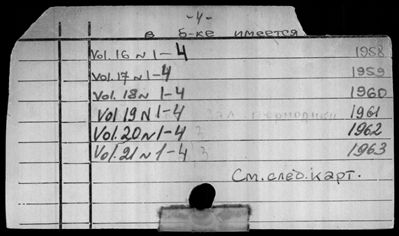 -4-
в б-ке имеется
Vol. 16 N 1-4 1958
Vol. 17 N 1-4 1959
Vol. 18 N 1-4 1960
Vol 19 N 1-4 1961
Vol. 20 N 1-4 1962
Vol. 21 N 1-4 1963
См. след. карт.